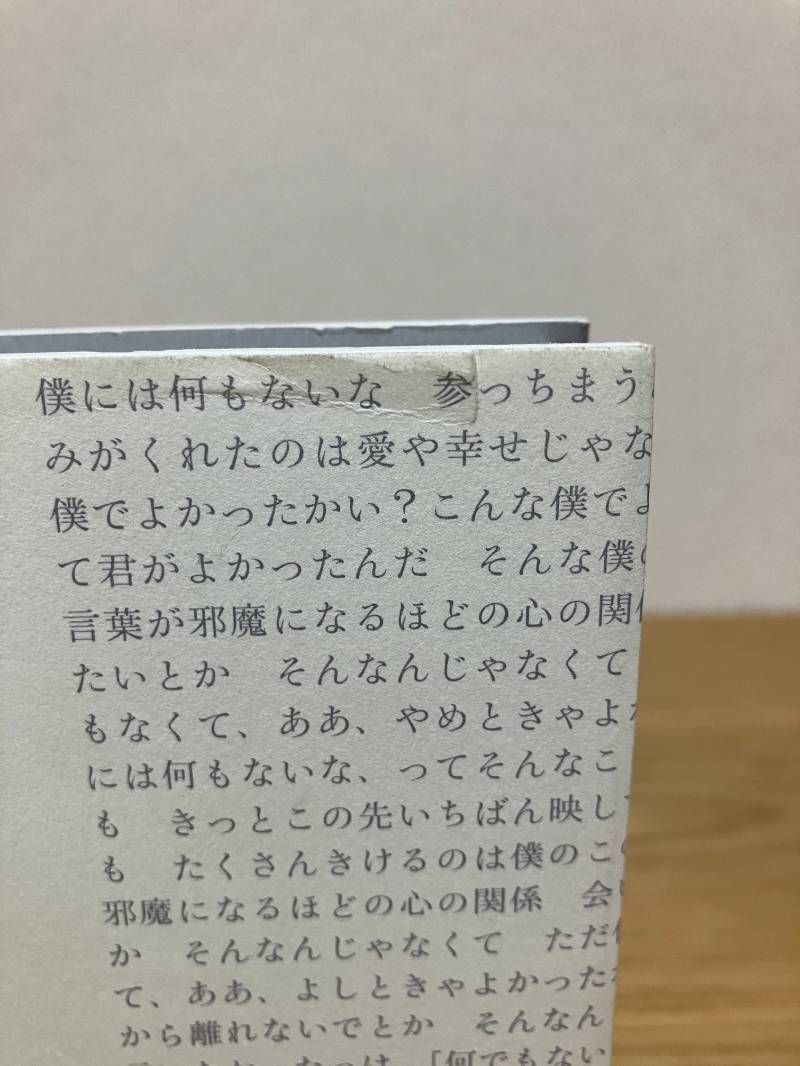 僕には何もないな　参っちまう
みがくれたのは愛や幸せじゃな
僕でよかったかい？こんな僕でよ
て君がよかったんだ　そんな僕の
言葉が邪魔になるほどの心の関
たいとか　そんなんじゃなくて
もなくて、ああ、やめときゃよ
には何もないな、ってそんなこ
も　きっとこの先いちばん映し
も　たくさんきけるのは僕のこ
邪魔になるほどの心の関係　会い
か　そんなんじゃなくて　ただ
て、ああ、よしときゃよかった
から離れないでとか　そんなん
「何でもない